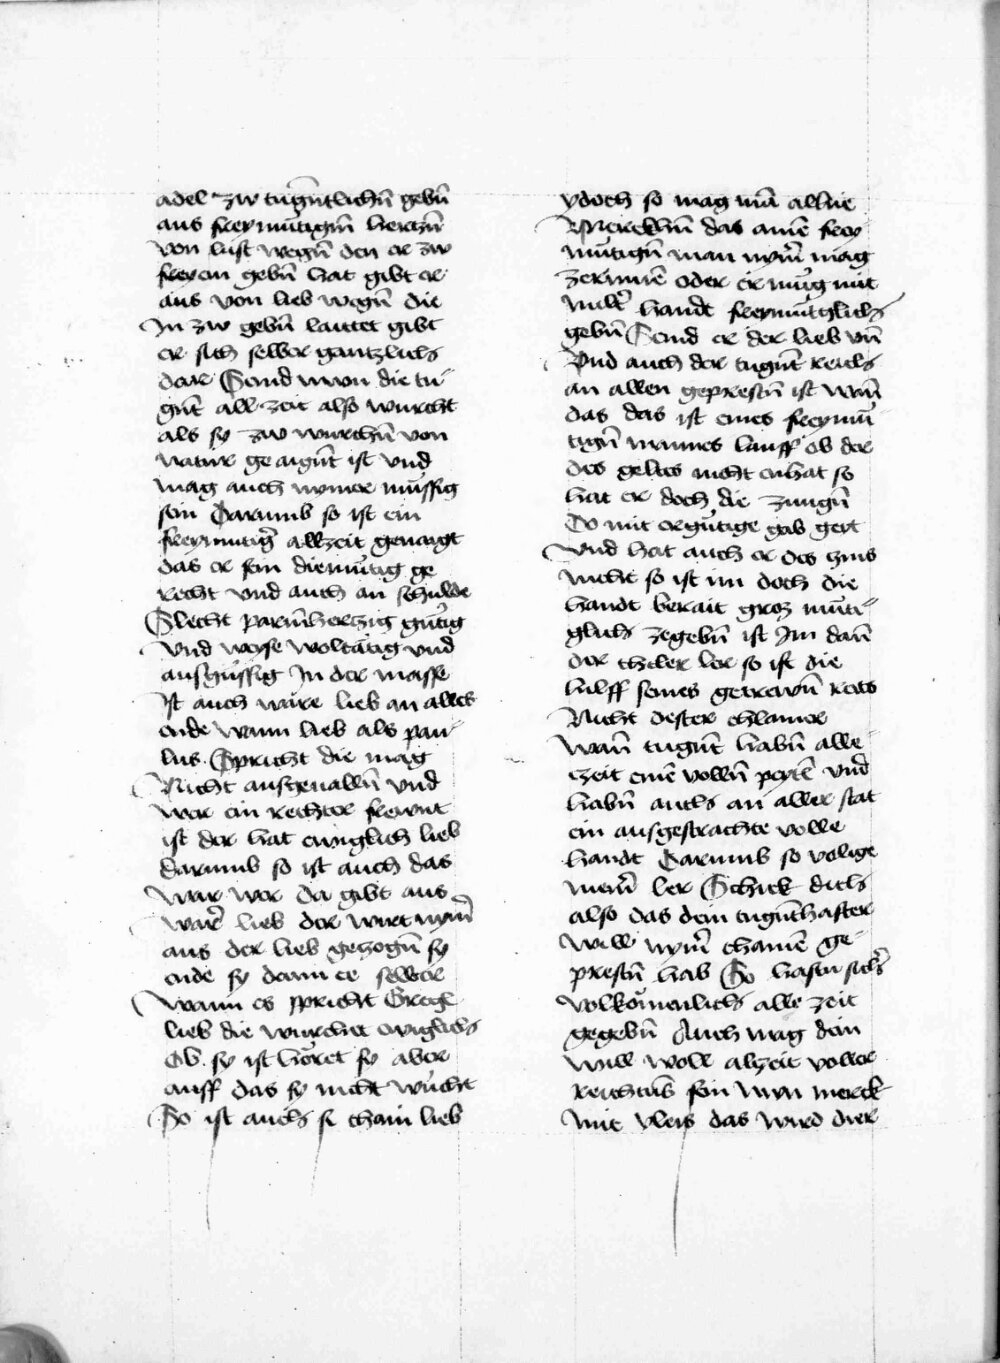 adel zw tugentlichñ gebñ
aus freymũtigm̃ hertzñ
von lust wegñ den er zw
freyem gebñ hat gibt er
aus von lieb wegñ die
In zw gebñ lauttet gibt
er sich selber gantzlich
dar Seind nwn die tu-
gñt all zeit also wurcht
als sy zw wurchñ von
natur ge aigñt ist vnd
mag auch nymer mũssig
sein Darumb so ist ein
freymutig̃ allzeit genaigt
das er sein diemũtig ge
recht vnd auch an schulde
Slecht parm̃hertzig gũtig
vnd weyse woltãtig vnd
ausgũssig In der masse
Ist auch ware lieb an alles
ende wann lieb als pau-
lus Spricht die mag
Nicht ausgeuallñ vnd
wer ein rechter frewnt
ist der hat ewiglich lieb
darumb so ist auch das
war wer da gibt aus
war̃ lieb der wirt nym̃
aus der lieb gezogñ sy
ende sy dann ee selber
wann es spricht Gregꝰ
lieb die wurchet ewiglich
Ob sy ist hõret sy aber
auff das sy nicht wũrcht
So ist auch si chain lieb
ydoch so mag mã allhie
Merckhñ das aim̃ frey
mũtigñ man nym̃ mag
zerinnẽ oder er mũg mit
milt̃ handt freymũtiglich
gebñ Seind er der lieb vñ
Vnd auch der tugñt reich
an allen geprestñ ist wañ
das das ist eines freymũ-
tigñ mannes lauff ob der
des geltes nicht enhat so
hat er doch die zungñ
Do mit er gũtige gab geit
vnd hat auch er des hins
nicht so ist im doch die
handt berait groz mũti-
glich zegebñ ist Im dañ
der cheler ler so ist die
hilff seines getrewñ rats
Nicht dester chlainer
wañ tugñt habñ alle
czeit einẽ vollñ peytl̃ vnd
habñ auch an aller stat
ein ausgestrachte volle
handt Darumb so volige
meiñ ler Schick dich
also das dein tugñthafter
will nym̃ chainẽ ge-
prestñ hab So hastu sich̃
volkõmenlich alle zeit
gegebñ Auch mag dein
will woll alzeit voller
reichtũb sein Nwn merck
mit vleis das wird dier